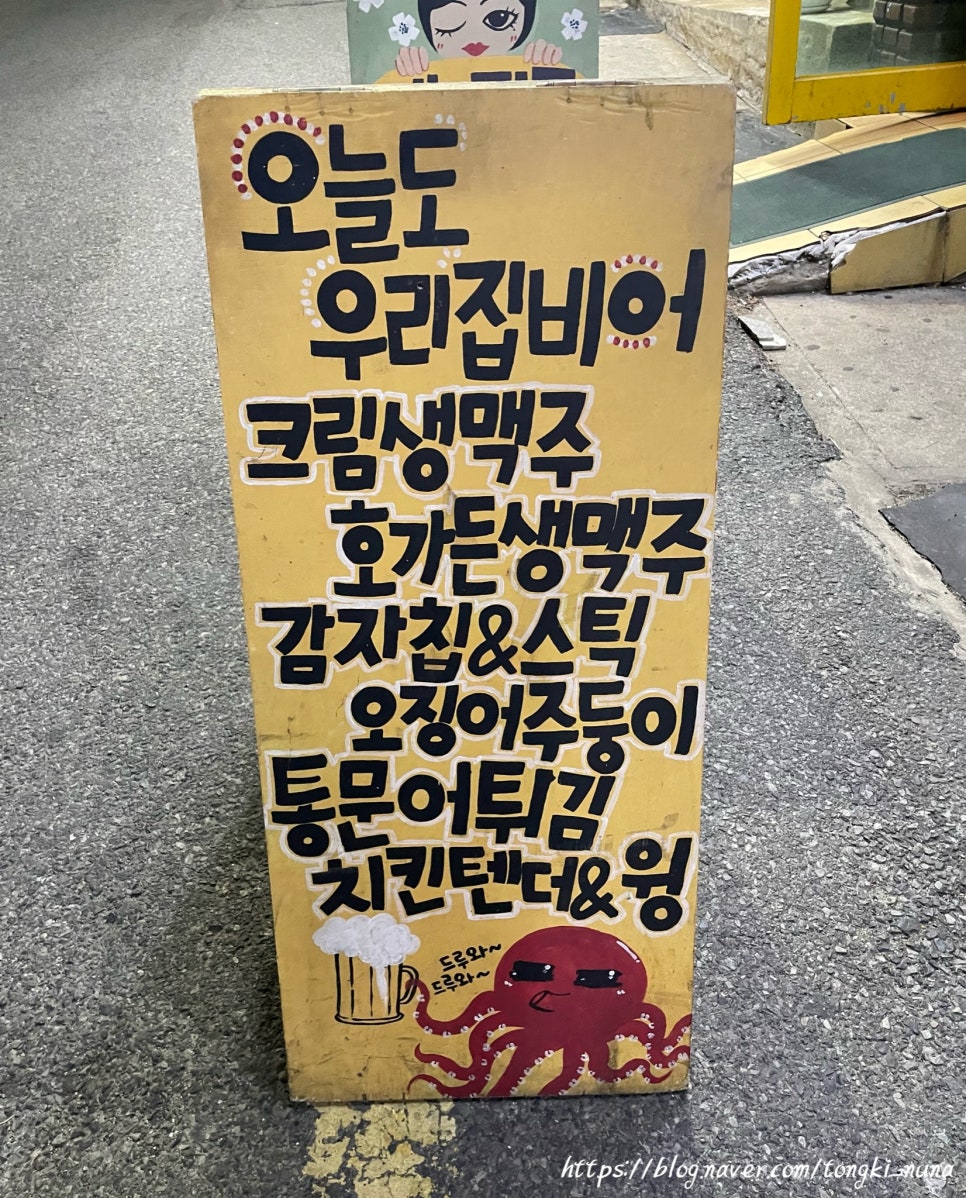 오늘도
우리집비어
크림생맥주
호가든생맥주
감자칩&스틱
오징어주둥이
통문어튀김
치킨텐더&윙
드루와~
드루와~
https://blog.naver.com/tongki_nuna